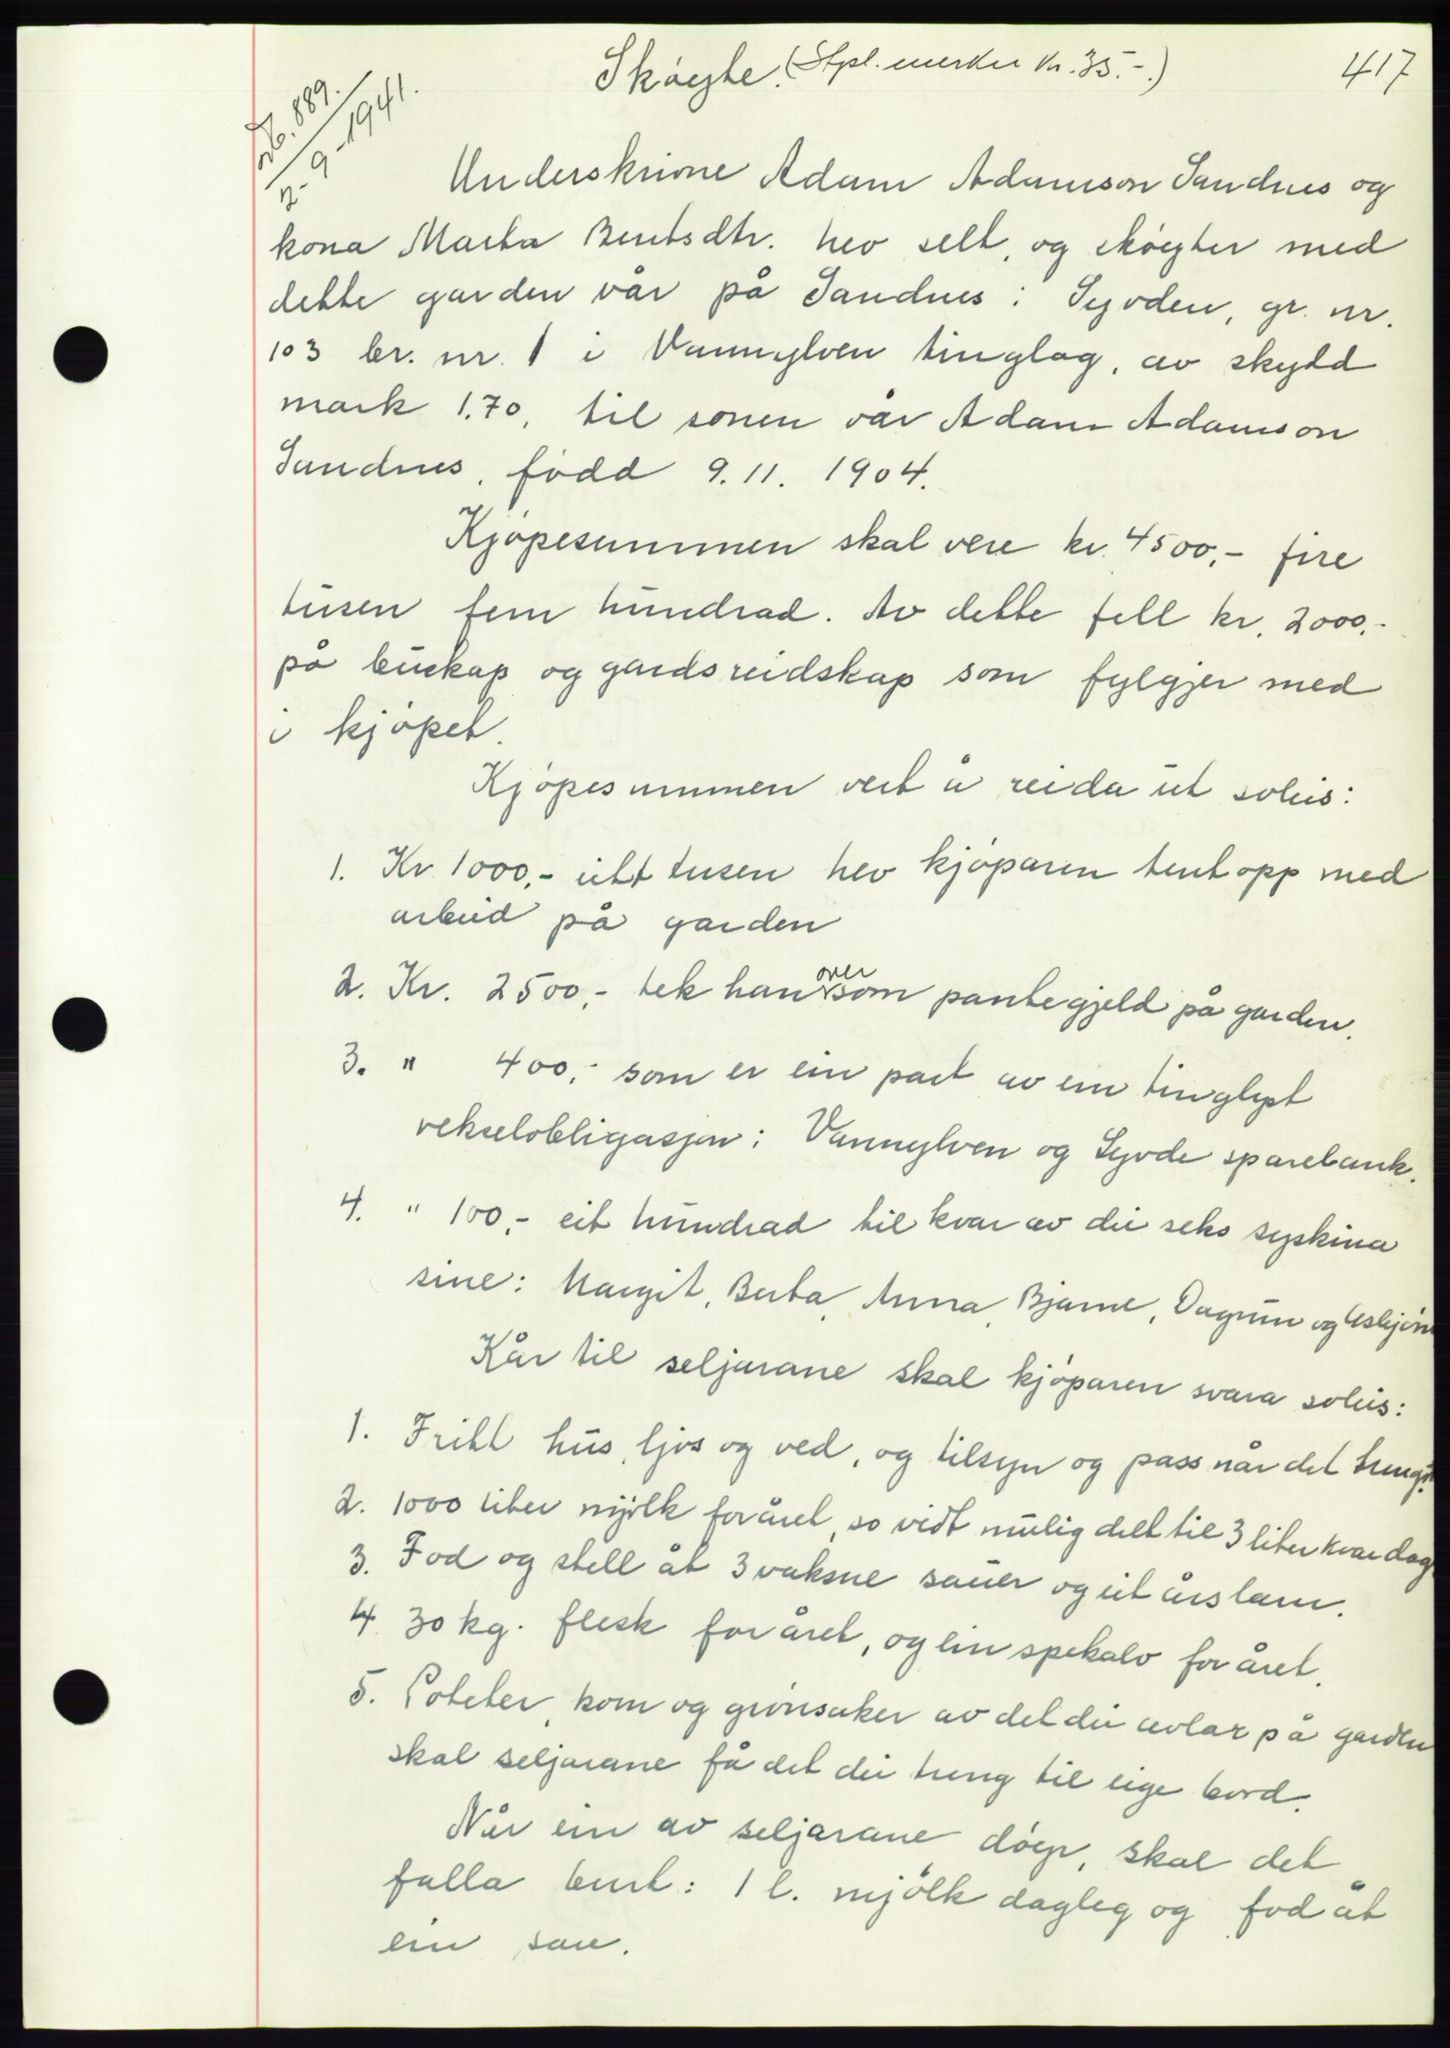 Skøyte. (Stpl.merker kr. 35.-.) 417
nb. 889.
2-9-1941.
Underskrivne Adam Adamson Sandnes og
kona Marta Bentsdtr. hev selt, og skøyter med
dette garden vår på Sandnes i Syvden, gr. nr.
103 br. nr. 1 i Vannylven tinglag, av skyld
mark 1.70, til sonen vår Adam Adamson
Sandnes, fødd 9.11. 1904.
Kjøpesummen skal vere kr. 4500,- fire
tusen fem hundrad. Av dette fell kr. 2000,-
på buskap og gardsreidskap som fylgjer med
i kjøpet.
Kjøpesummen vert å reida ut soleis:
1. Kr 1000,- eitt tusen hev kjøparen tent opp med
arbeid på garden
2. Kr. 2500,- tek han over som pantegjeld på garden.
3. " 400,- som er ein part av ein tinglyst
vekselobligasjon i Vannylven og Syvde sparebank.
4. " 100,- eit hundrad til kvar av dei seks syskina
sine: Margit, Berta, Anna, Bjarne, Dagrun og Asbjørn
Kår til seljarane skal kjøparen svara soleis:
1. Fritt hus, ljos og ved, og tilsyn og pass når det trengst.
2. 1000 liter mjølk for året, so vidt mulig delt til 3 liter kvar dag
3. Fod og stell åt 3 vaksne sauer og eit årslam.
4 30 kg. flesk for året, og ein spekalv for året.
5. Poteter, korn og grønsaker av det dei avlar på garden
skal seljarane få det dei treng til eige bord.
Når ein av seljarane døyr, skal det
falla burt: 1 l. mjølk dagleg og fod åt
ein sau.